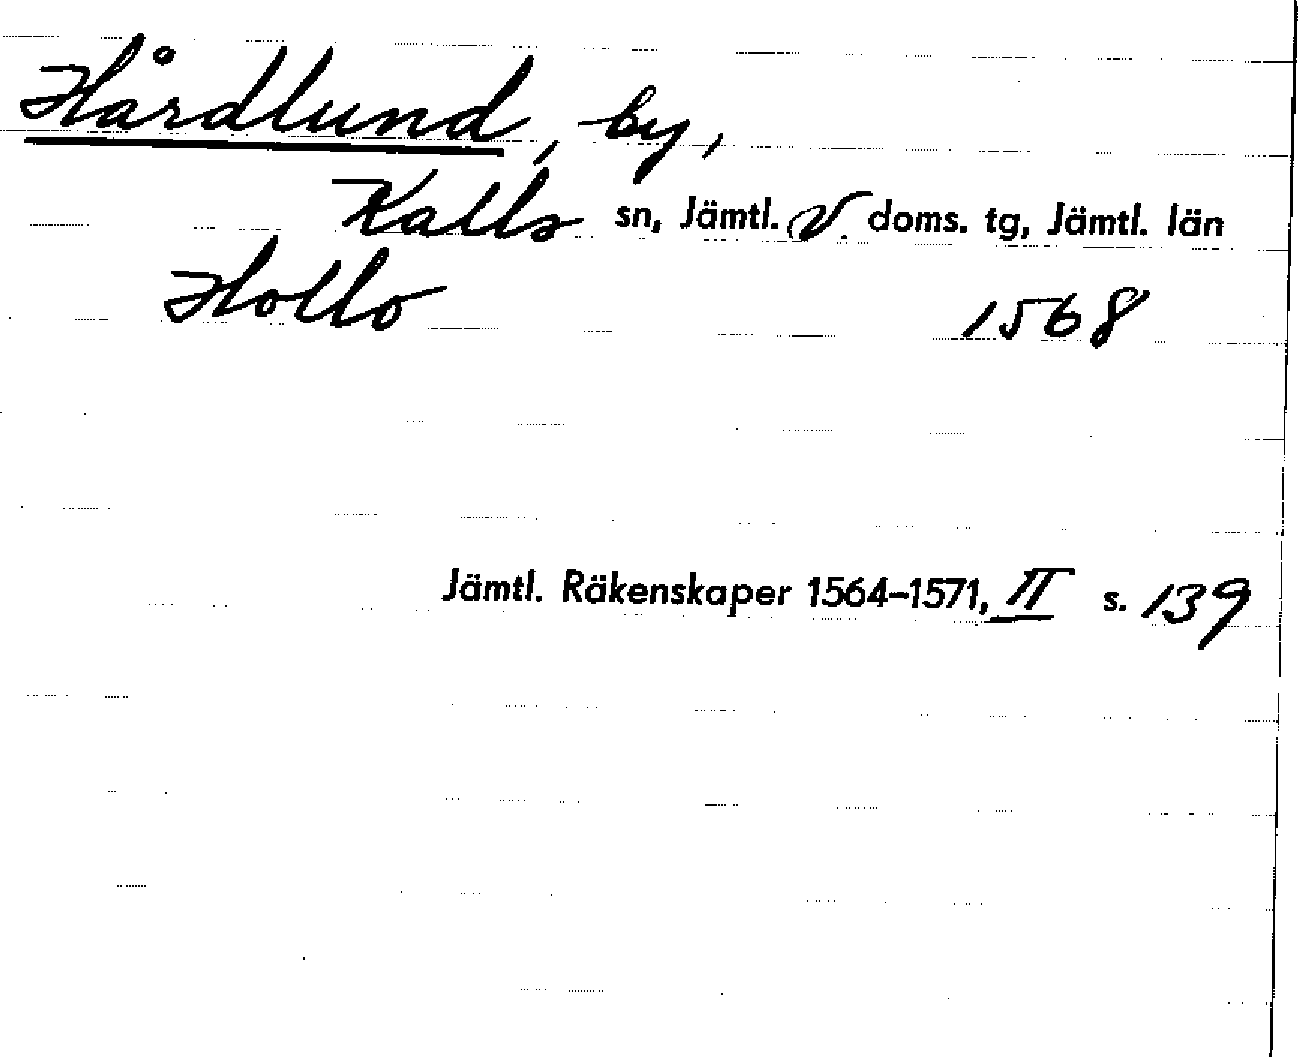 Hårdlund, by,
Kalls sn, Jämtl. V. doms. tg, Jämtl. län
Hollo 1568
Jämtl. Räkenskaper 1564–1571, II s. 139